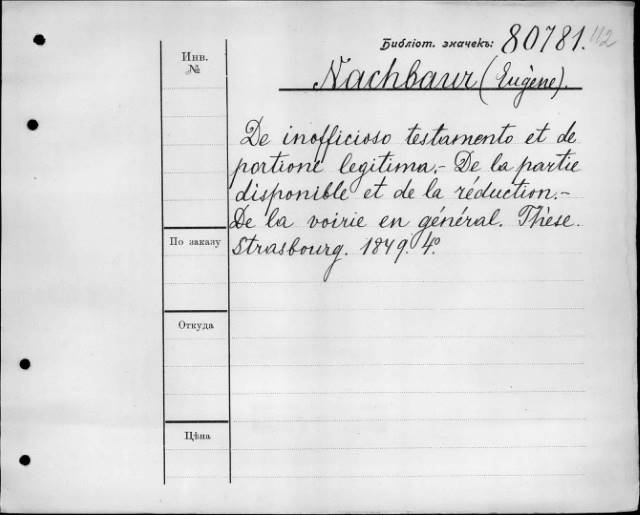 Библіот. значекъ: 80781. 112
Инв. №
Nachbaur (Eugène).
De inofficioso testamento et de
portione legitima.- De la partie
disponible et de la réduction.-
De la voirie en général. Thèse.
Strasbourg. 1849. 4º.
По заказу
Откуда
Цѣна